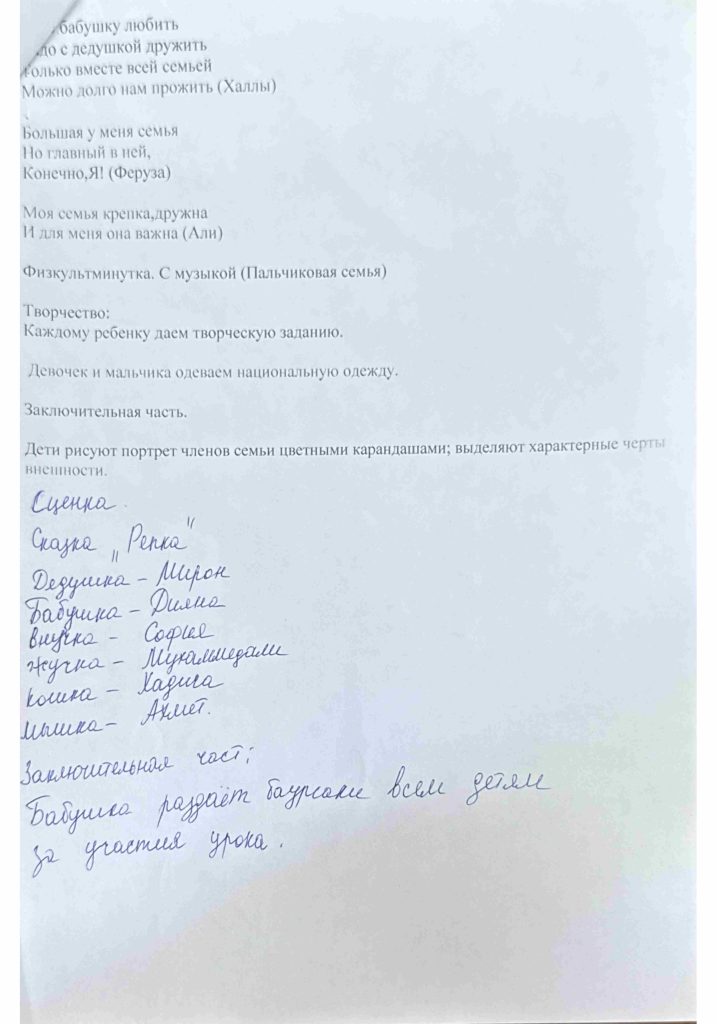 бабушку любить
с дедушкой дружить
Только вместе всей семьей
Можно долго нам прожить (Халлы)
Большая у меня семья
Но главный в ней,
Конечно,Я! (Феруза)
Моя семья крепка,дружна
И для меня она важна (Али)
Физкультминутка. С музыкой (Пальчиковая семья)
Творчество:
Каждому ребенку даем творческую заданию.
Девочек и мальчика одеваем национальную одежду.
Заключительная часть.
Дети рисуют портрет членов семьи цветными карандашами; выделяют характерные черты
внешности.
Сценка.
Сказка „Репка"
Дедушка – Мирон
Бабушка – Диана
внучка – София
жучка – Мухаммедали
кошка – Хадиса
мышка – Ахмет.
Заключительная част;
Бабушка раздаёт баурсаки всем детям
за участия урока.